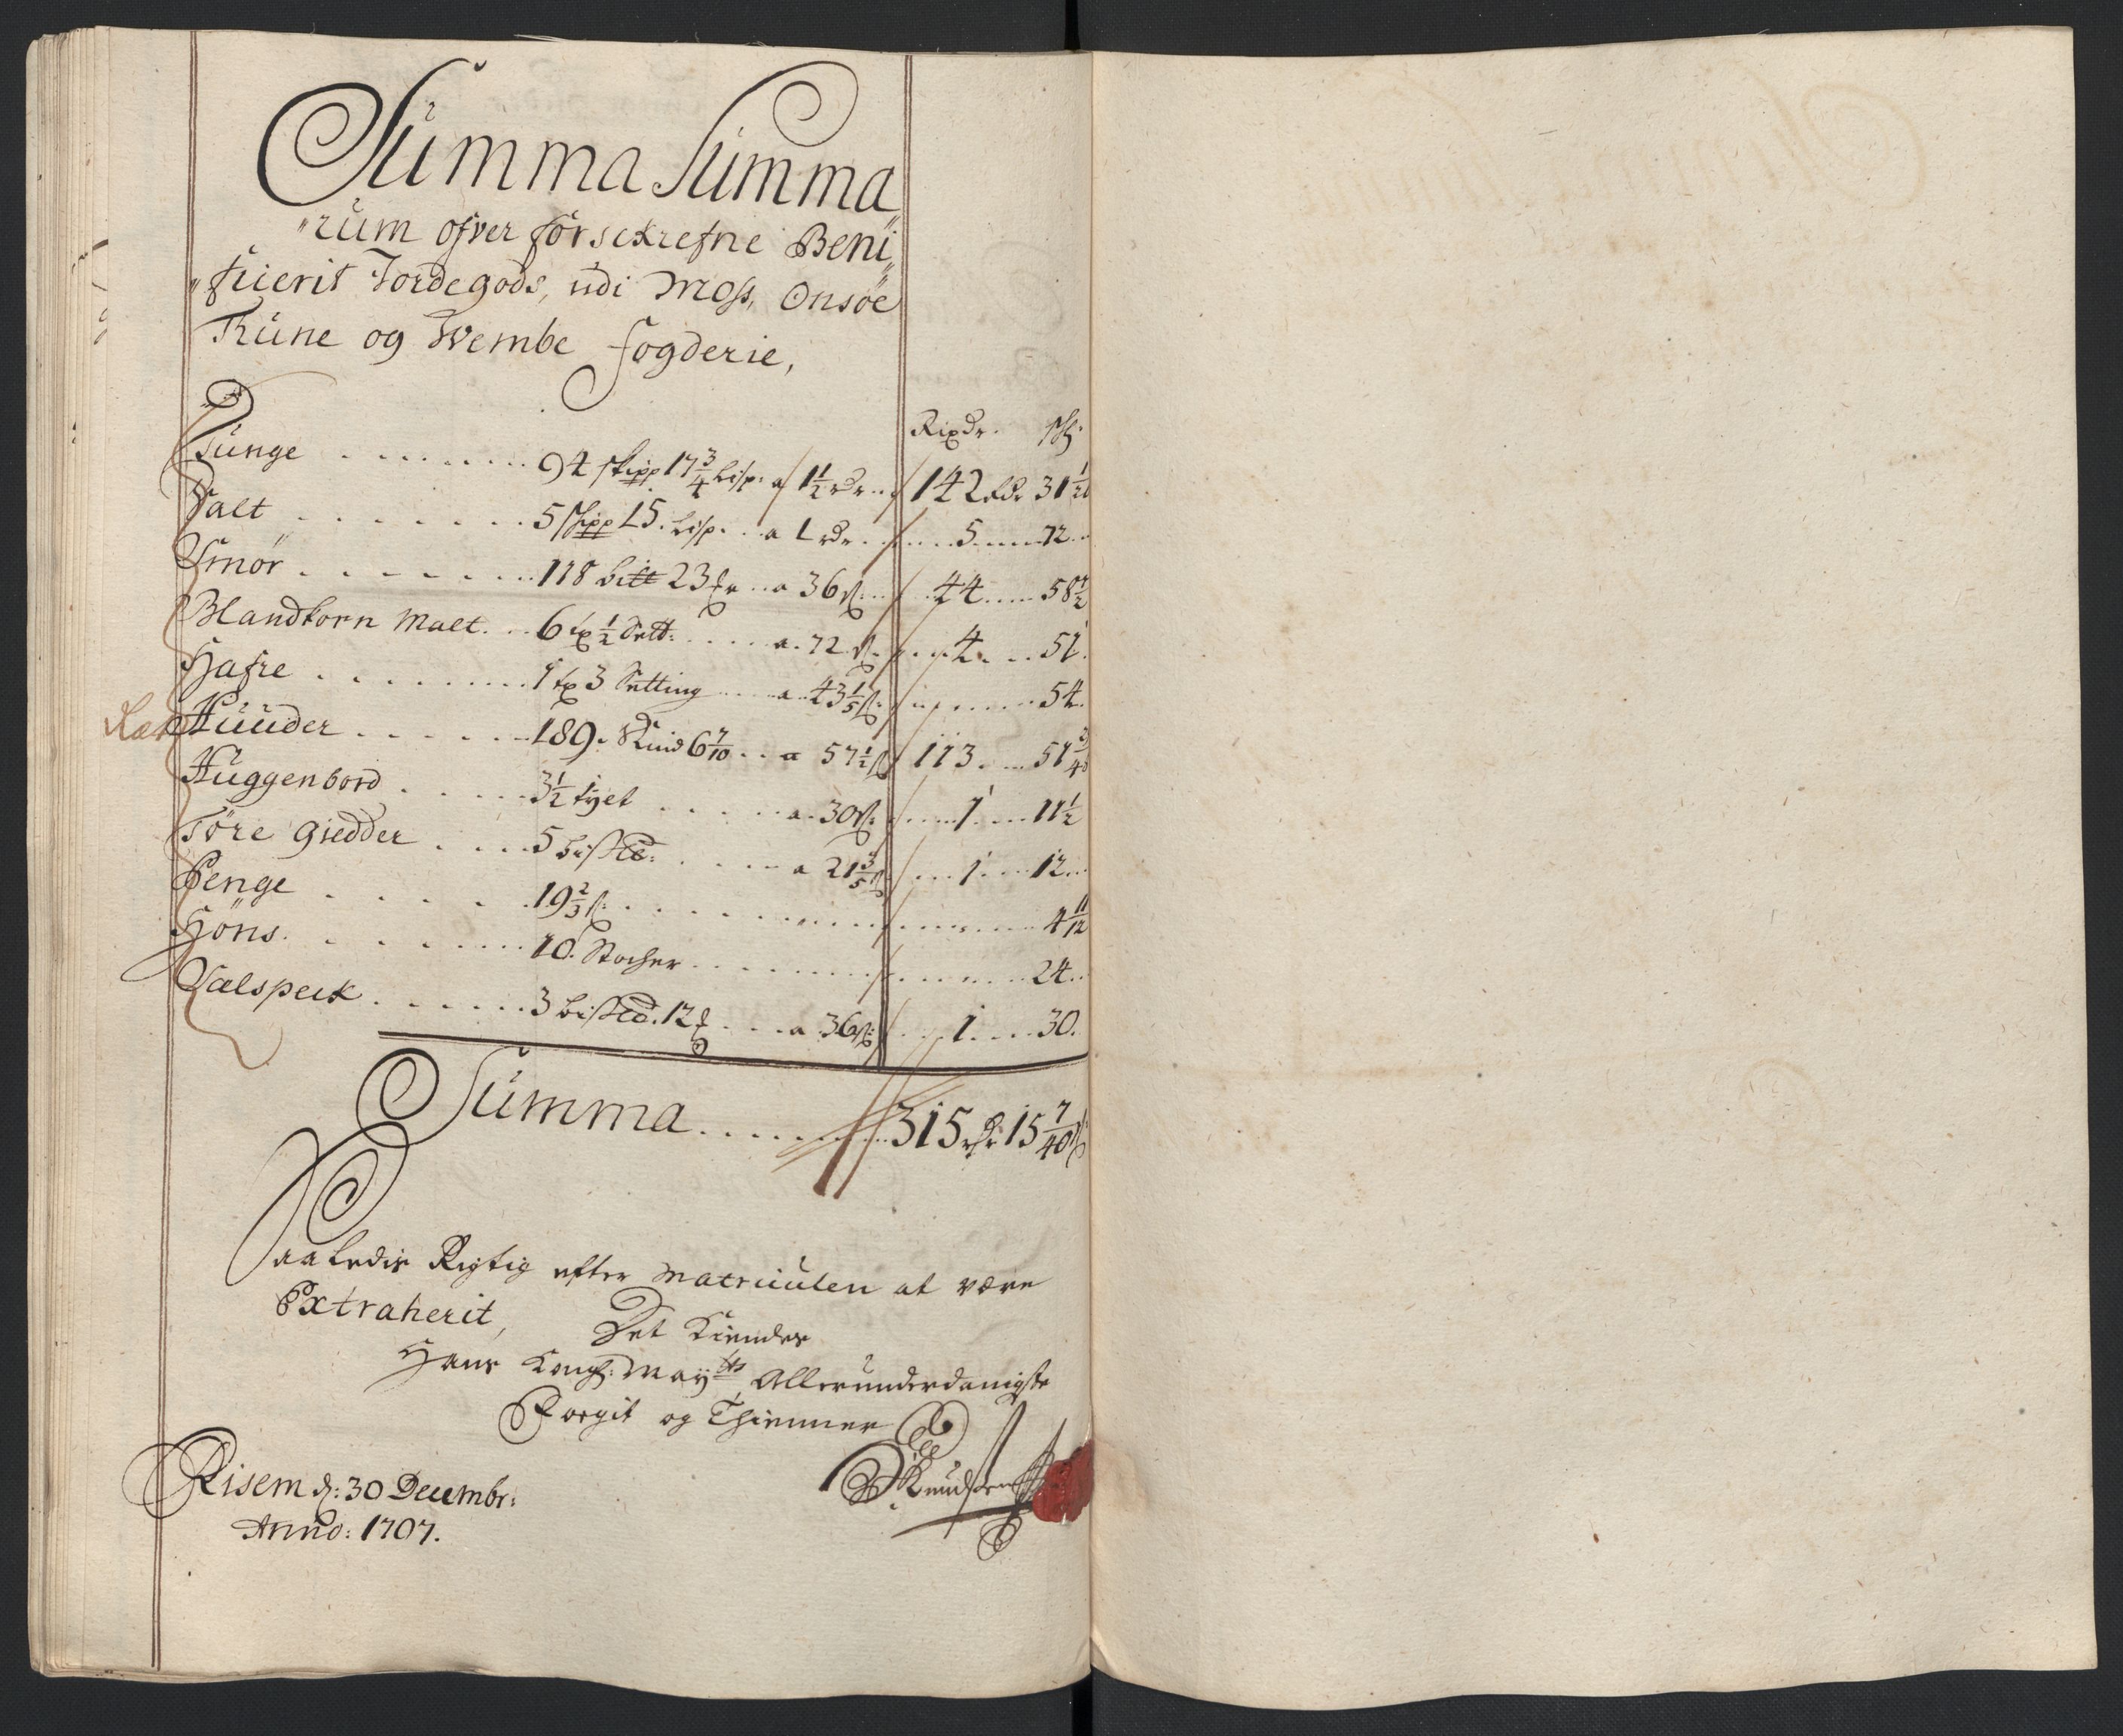 Summa Summa
"rum ofver forschrefne Beni"
"ficierit Jordegods, udi Moss, Onsøe
Thune og Wembe fogderie,
Rixdr. ßl:
Tunge . . . . . . . 94 skipp 17 3/4 Lisp: a 1 1/2 rdr . . 142 rdr 31 1/2
Salt . . . . . . . 5 skipp 15. Lisp. . . a 1 rdr . . . . 5 . . . . 72 . .
Smør . . . . . . . 118 bitt 23 . . a 36 ß . . . 44 . . . . 58 1/2
Blandkorn Malt . . . 6 tø 1/2 Sett: . . . . a . 72 ß . . . . 4 . . . 51.
Hafre . . . . . . . 1 tø 3 Setting . . . a . 43 1/5 ß . . . . . . 54.
Huuder . . . . . . 189. Skind 6 7/10 . . a 57 1/2 ß 113. . . . 51 3/40
Huggenbord . . . . . 3 1/2 tyet . . . . . a . 30 ß: . . . 1 . . . 11 1/2
Töre giedder . . . . 5 . . . . a 21 3/5 ß . . . 1 . . . 12 . .
Penge . . . . . 19 2/3 ß: . . . . . . . . . . . 4 11/12
Höns . . . . . . 10. Stocher . . . . . . . . . . 24 . .
Sælspeck . . . . . . 3 12 . . . a 36 ß: . . 1 . . . 30.
Summa . . . . . . . 315 rdr 15 7/40 ß
Saaledis Rigtig efter Matriculen at være
Extraherit,
Det Kiender
Hans Kongl: May:ts Allerunderdanigste
Forgit og Thienner
Knudsen
Risem d: 30 Decembr:
Anno: 1707.